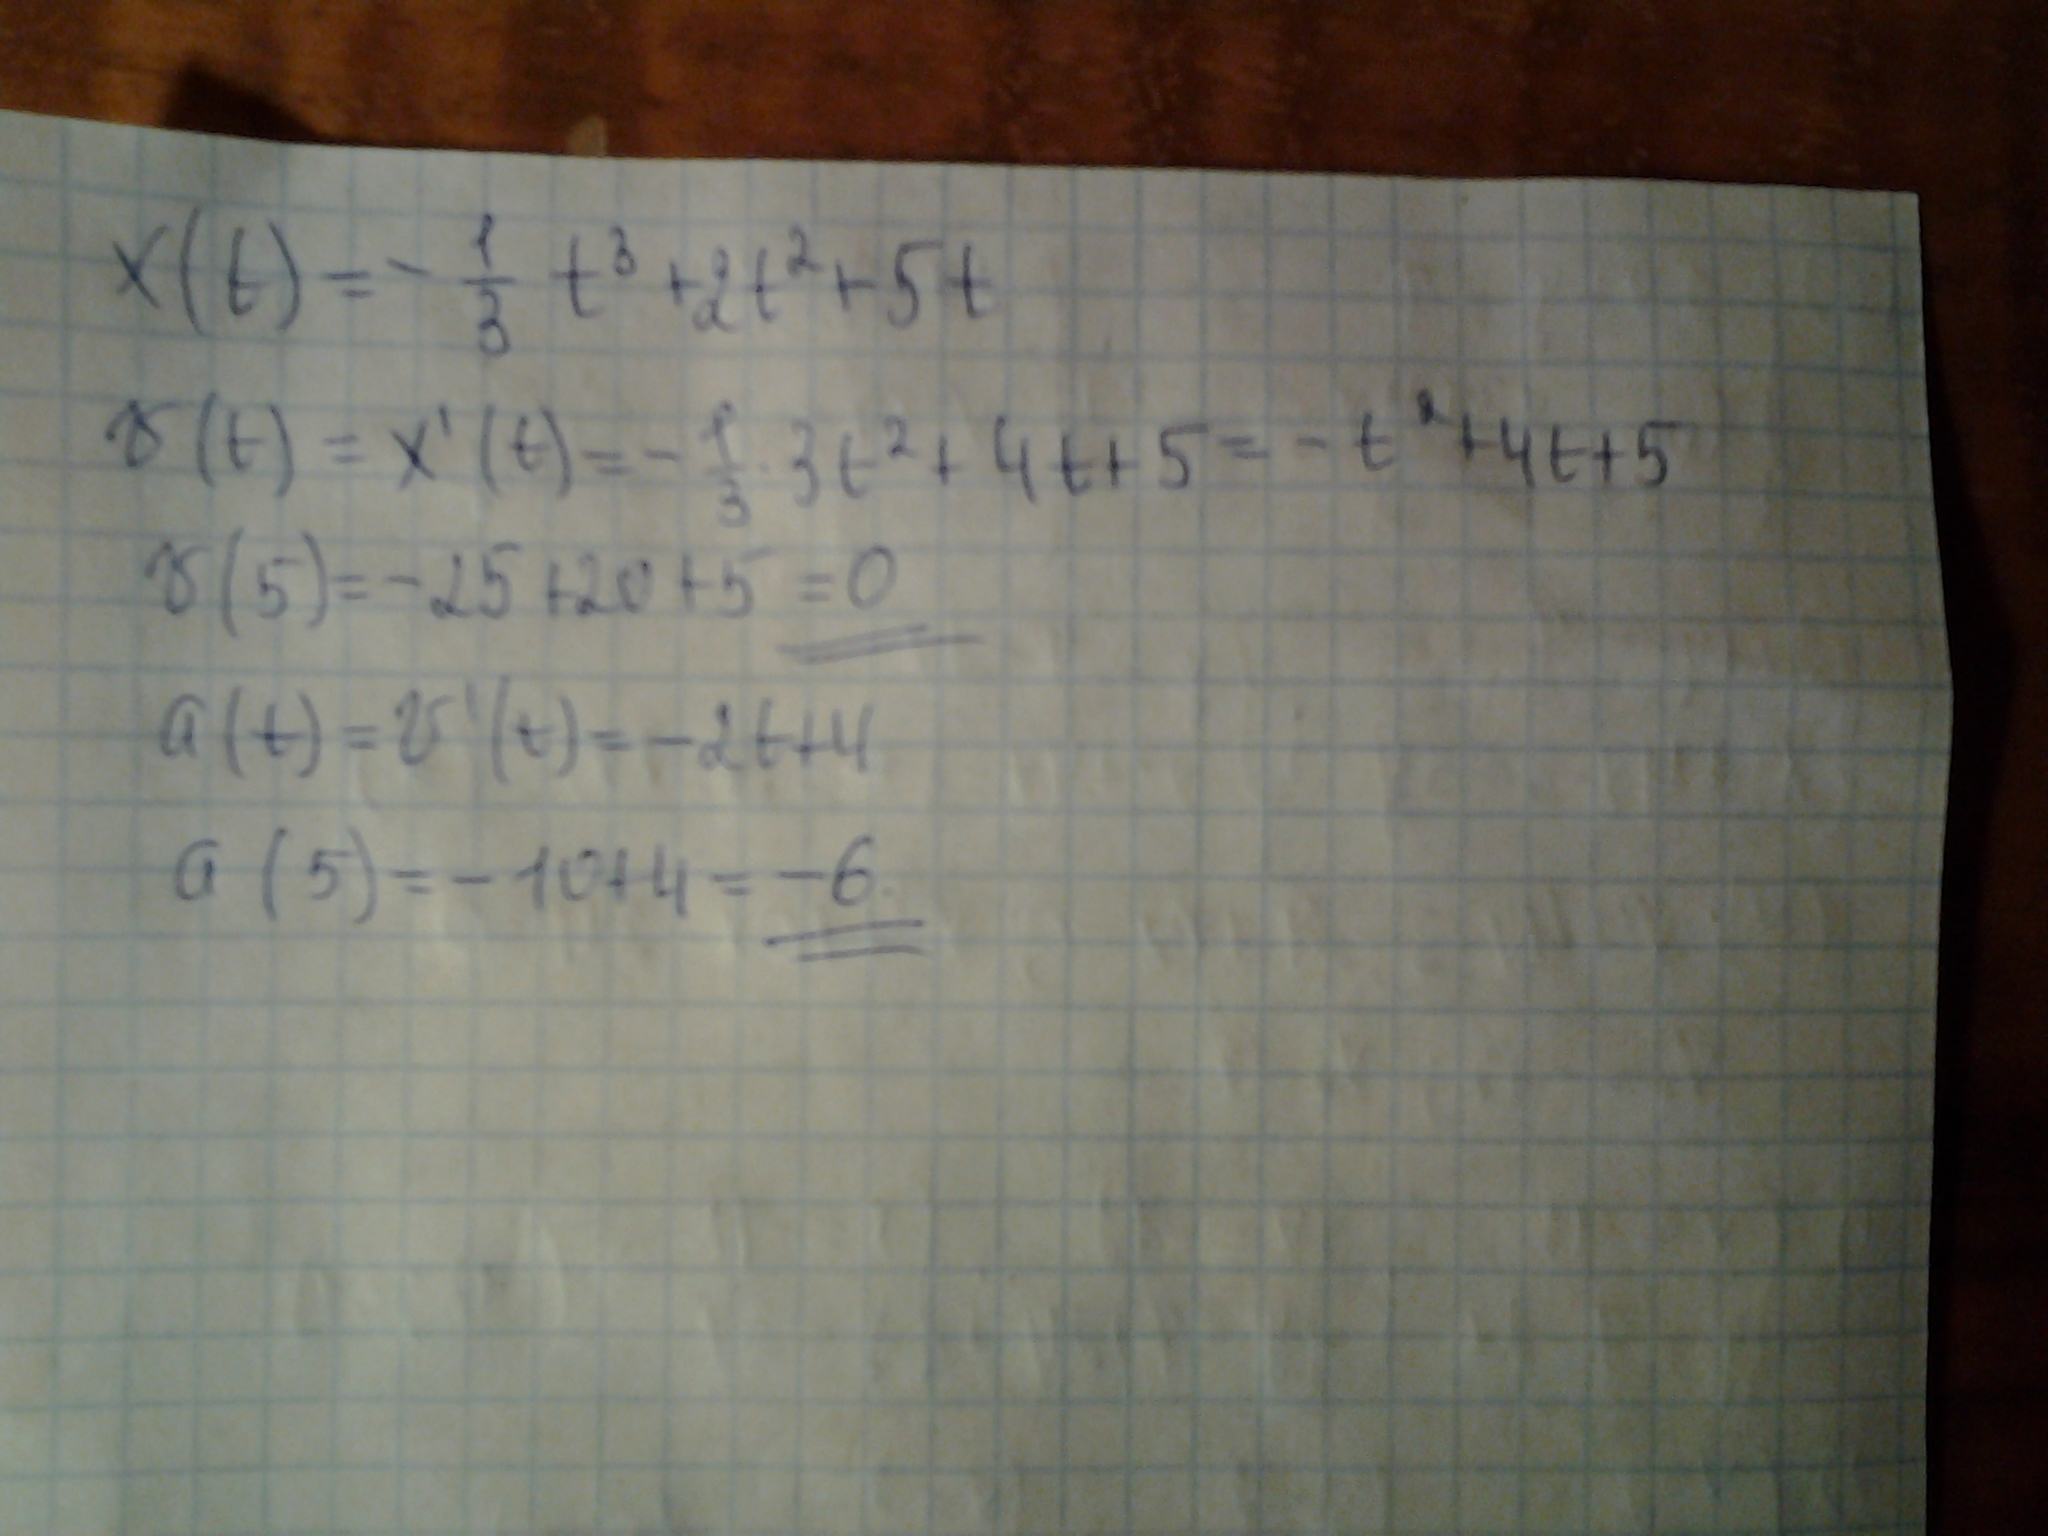 x(t)=-1/3 t³+2t²+5t
v(t)=x'(t)=-1/3·3t²+4t+5=-t²+4t+5
v(5)=-25+20+5=0
a(t)=v'(t)=-2t+4
a(5)=-10+4=-6.